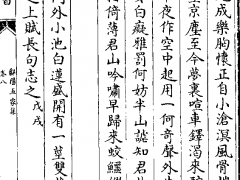 成樂胸懷正自小滄溟風骨
京塵至今夢裏喧車鐸渴來
夜作空中起用一何奇聲外
白癡雅罰何妨半山誠知君
倚薄君山吟嘯早歸來蛟鱷
外小池白蓮盛開有一莖雙
之士賦長句志之戊戌
卷八